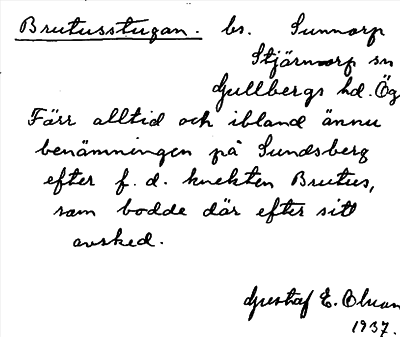 Brutusstugan. bs. Sunnorp
Stjärnorp sn
Gullbergs hd. Ög
Förr alltid och ibland ännu
benämningen på Sundsberg
efter f. d. knekten Brutus,
som bodde där efter sitt
avsked.
Gustaf E.
1937.